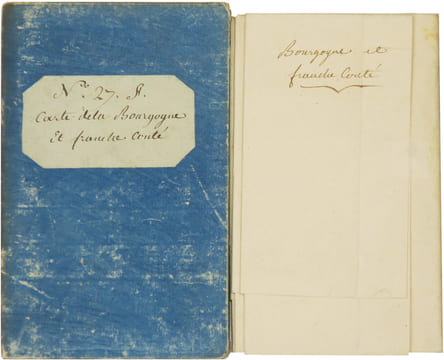 N.º 27. J.
Carte de la Bourgogne
et franche Conté
Bourgogne et
franche Conté